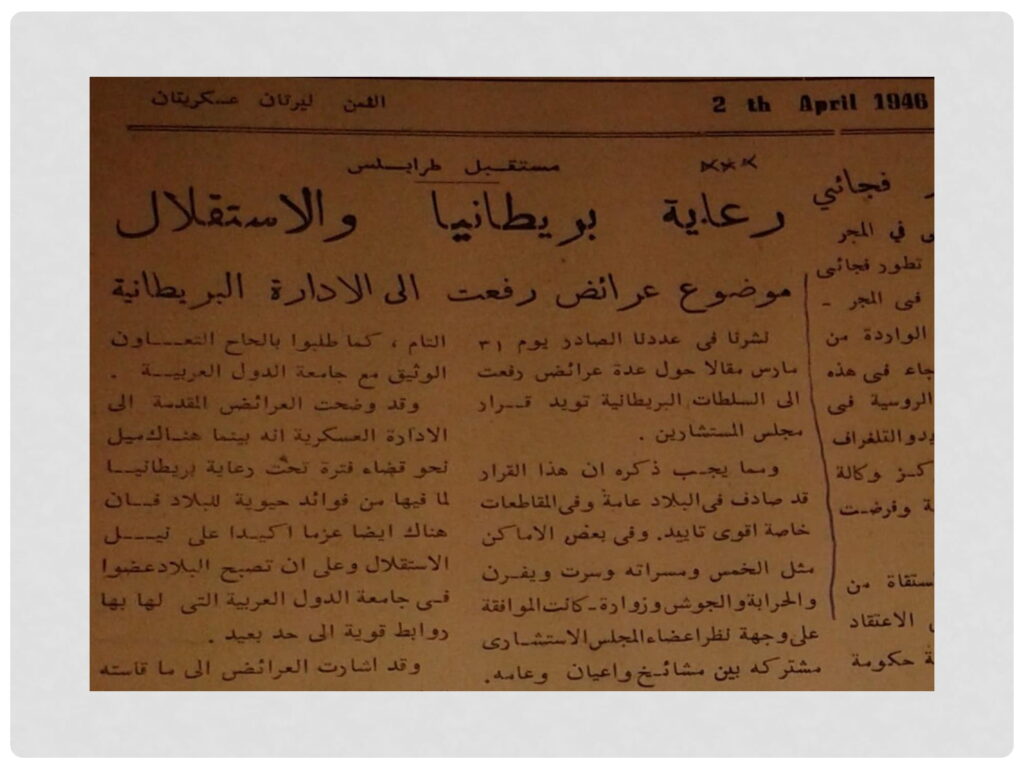 2 th April 1946
الثمن ليرتان عسكريتان
مستقبل طرابلس
رعاية بريطانيا والاستقلال
موضوع عرائض رفعت الى الادارة البريطانية
نشرنا فى عددنا الصادر يوم ٣١
مارس مقالا حول عدة عرائض رفعت
الى السلطات البريطانية تويد قرار
مجلس المستشارين .
ومما يجب ذكره ان هذا القرار
قد صادف فى البلاد عامة وفى المقاطعات
خاصة اقوى تاييد. وفى بعض الاماكن
مثل الخمس ومسراته وسرت ويفرن
والحرابة والجوش وزوارة ـ كانت الموافقة
على وجهة نظر اعضاء المجلس الاستشارى
مشتركه بين مشائخ واعيان وعامه.
التام ، كما طلبوا بالحاح التعاون
الوثيق مع جامعة الدول العربية .
وقد وضحت العرائض المقدمة الى
الادارة العسكرية انه بينما هناك ميل
نحو قضاء فترة تحت رعاية بريطانيا
لما فيها من فوائد حيوية للبلاد فان
هناك ايضا عزما اكيدا على نيل
الاستقلال وعلى ان تصبح البلاد عضوا
فى جامعة الدول العربية التى لها بها
روابط قوية الى حد بعيد .
وقد اشارت العرائض الى ما قاسته
فجائي
في المجر
تطور فجائى
فى المجر -
الواردة من
جاء فى هذه
الروسية فى
يدو التلغراف
كز وكالة
ة وفرضت
ستقاة من
الاعتقاد
ة حكومة